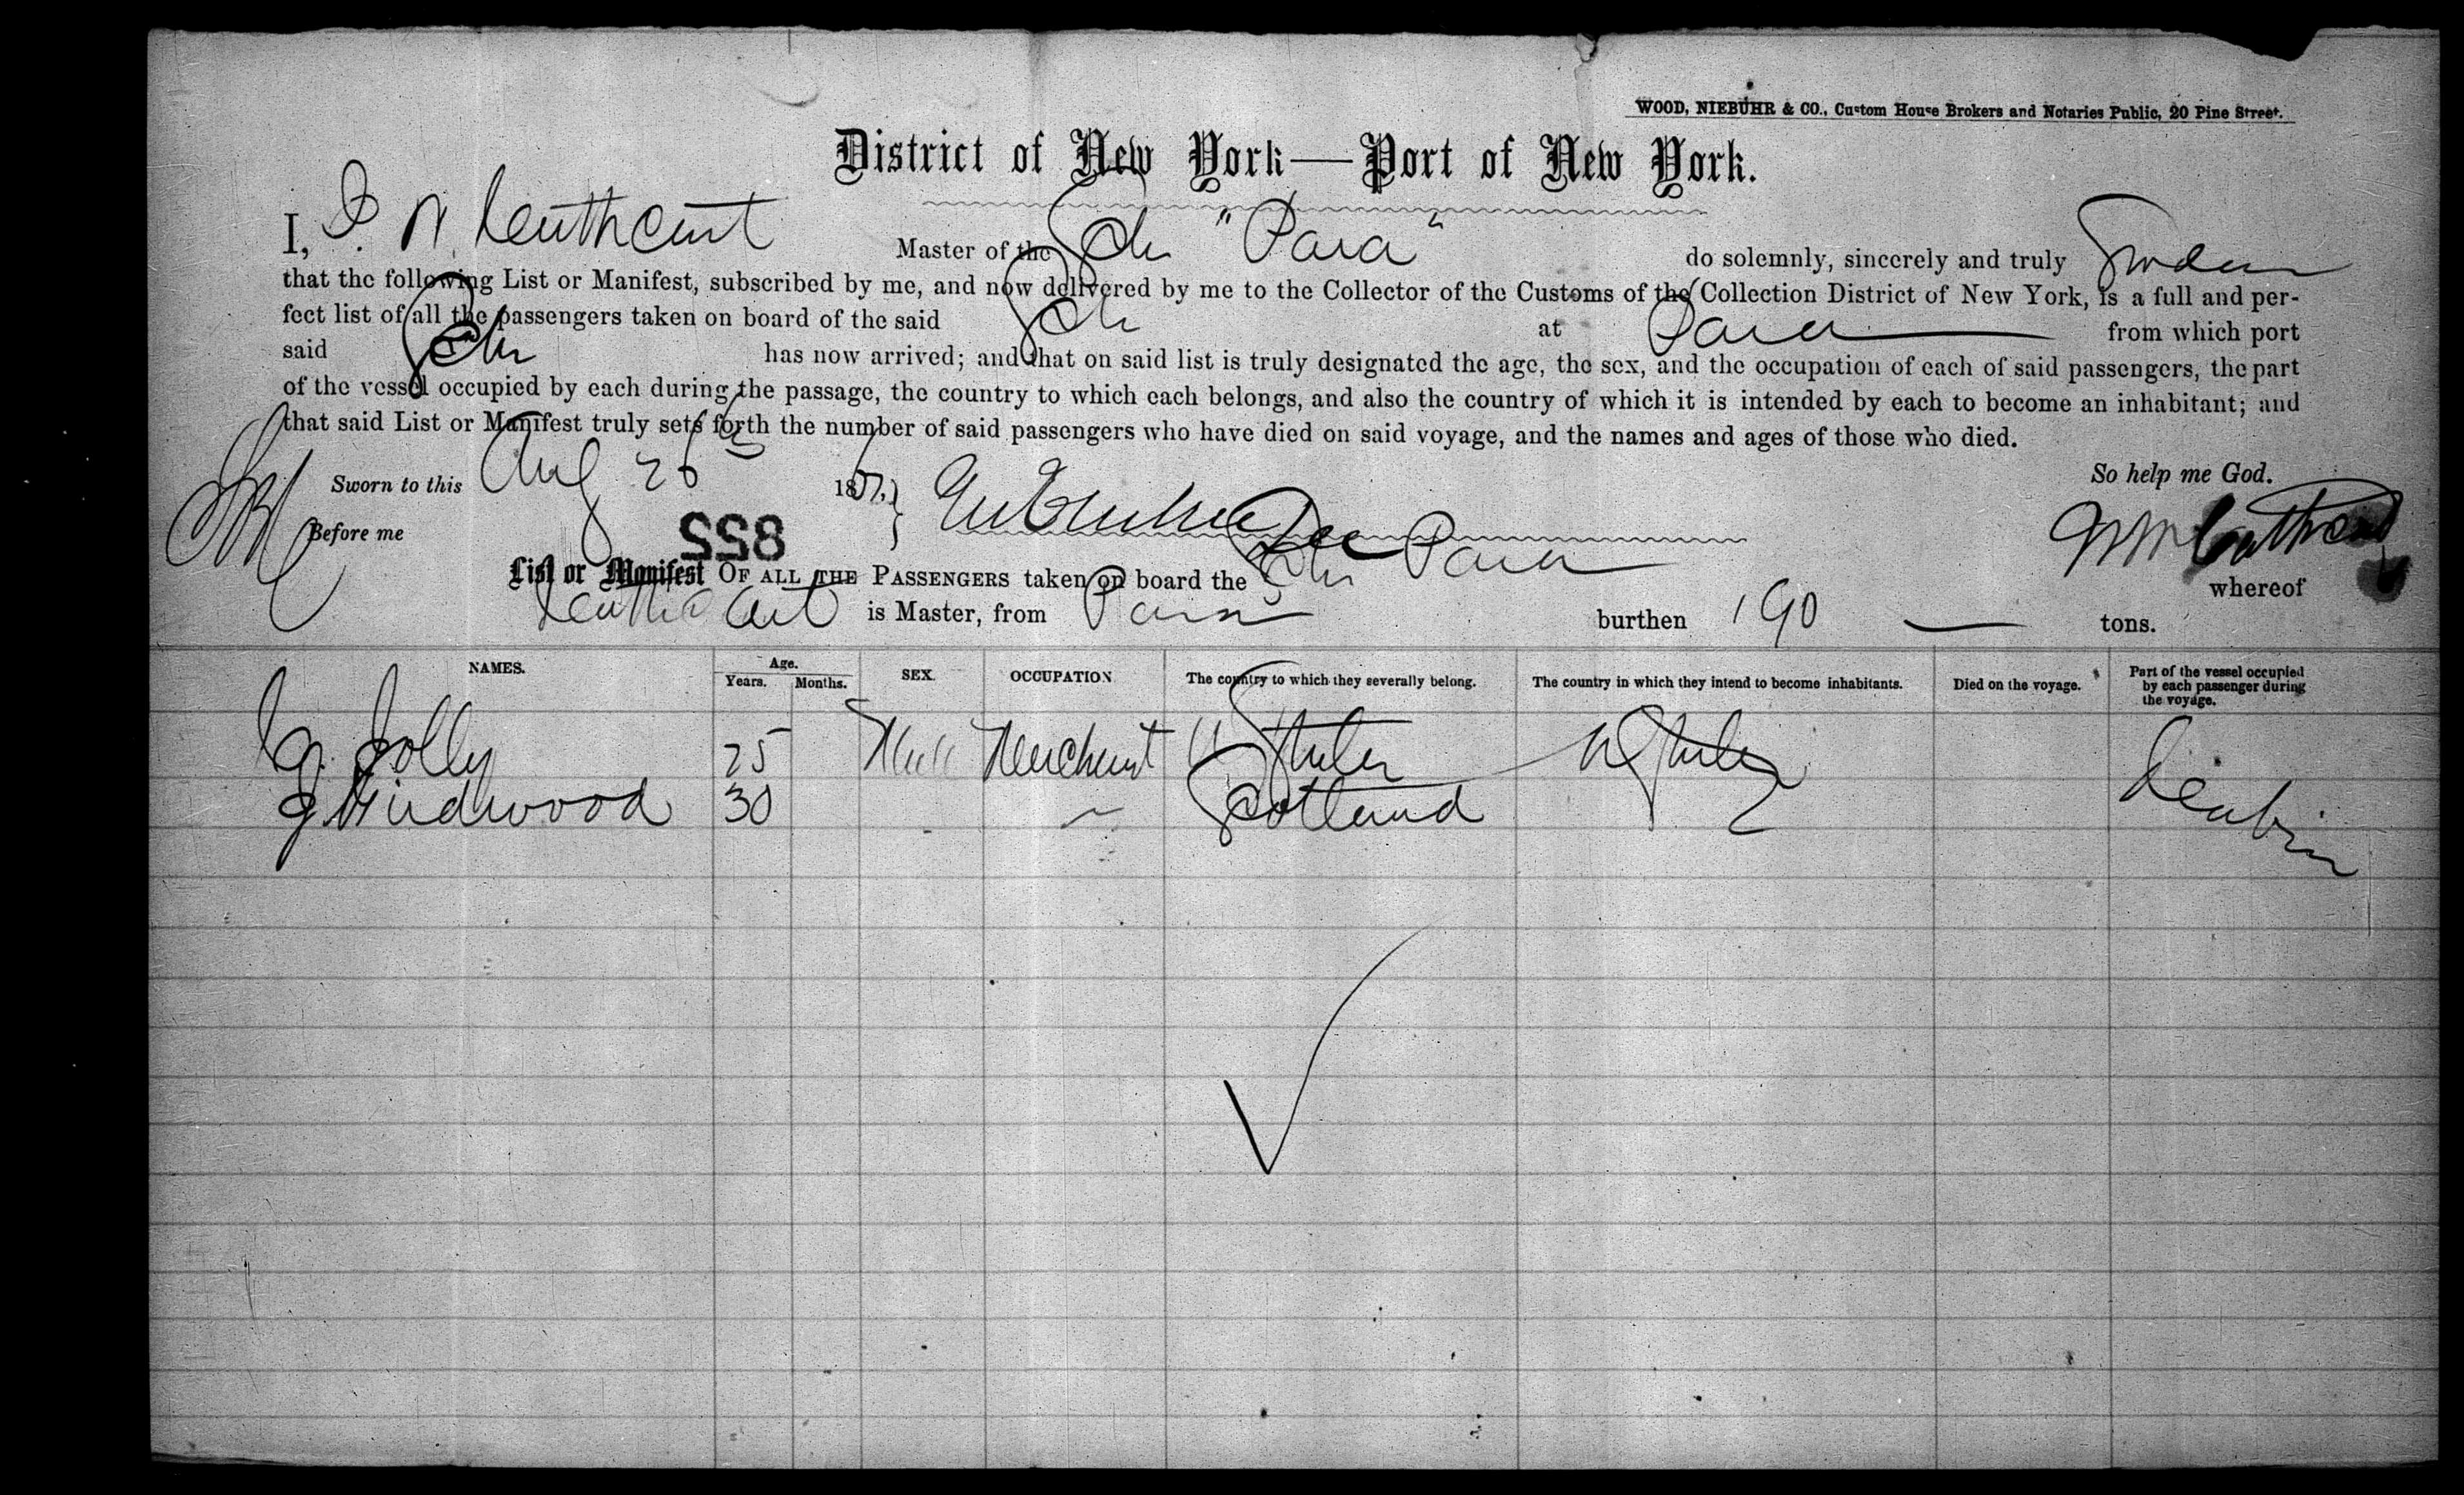 WOOD, NIEBUHR & CO., Custom House Brokers and Notaries Public, 20 Pine Street.
District of New York—Port of New York.
I, Master of the Schr "Para" do solemnly, sincerely and truly Swear
that the following List or Manifest, subscribed by me, and now delivered by me to the Collector of the Customs of the Collection District of New York, is a full and per-
fect list of all the passengers taken on board of the said Schr at Para from which port
said Schr has now arrived; and that on said list is truly designated the age, the sex, and the occupation of each of said passengers, the part
of the vessel occupied by each during the passage, the country to which each belongs, and also the country of which it is intended by each to become an inhabitant; and
that said List or Manifest truly sets forth the number of said passengers who have died on said voyage, and the names and ages of those who died.
Sworn to this Aug 26 187 So help me God.
Before me
855
List or Manifest OF ALL THE PASSENGERS taken on board the Schr Para whereof
is Master, from Para burthen 190 tons.
NAMES. Age. Years. Months. SEX. OCCUPATION The country to which they severally belong. The country in which they intend to become inhabitants. Died on the voyage. Part of the vessel occupied by each passenger during the voyage.
Jolly 25 Male Merchant U States U States Cabin
30 Scotland